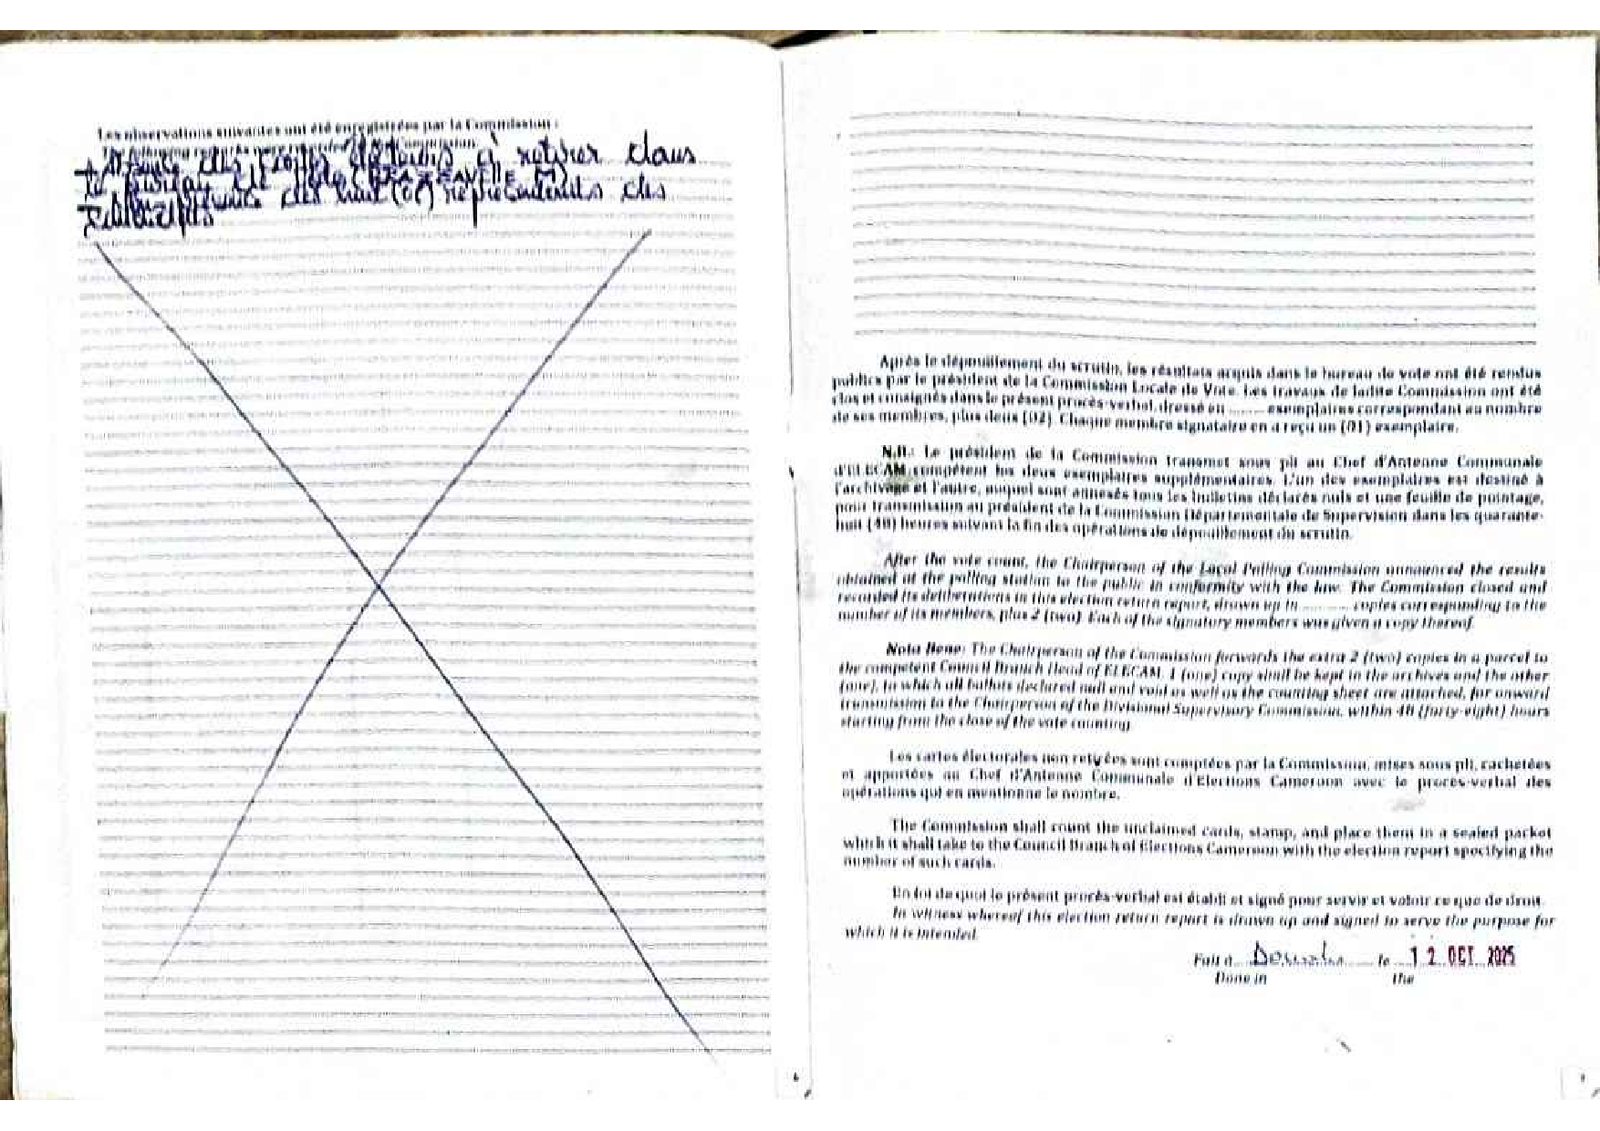 Les observations suivantes ont été enregistrées par la Commission :
à retirer dans
représentants des
Après le dépouillement du scrutin, les résultats acquis dans le bureau de vote ont été rendus
publics par le président de la Commission Locale de Vote. Les travaux de ladite Commission ont été
clos et consignés dans le présent procès-verbal, dressé en ......... exemplaires correspondant au nombre
de ses membres, plus deux (02). Chaque membre signataire en a reçu un (01) exemplaire.
N.B.: Le président de la Commission transmet sous pli au Chef d'Antenne Communale
d'ELECAM compétent les deux exemplaires supplémentaires. L'un des exemplaires est destiné à
l'archivage et l'autre, auquel sont annexés tous les bulletins déclarés nuls et une feuille de pointage,
pour transmission au président de la Commission Départementale de Supervision dans les quarante-
huit (48) heures suivant la fin des opérations de dépouillement du scrutin.
After the vote count, the Chairperson of the Local Polling Commission announced the results
obtained at the polling station to the public in conformity with the law. The Commission closed and
recorded its deliberations in this election return report, drawn up in ......... copies corresponding to the
number of its members, plus 2 (two). Each of the signatory members was given a copy thereof.
Nota Bene: The Chairperson of the Commission forwards the extra 2 (two) copies in a parcel to
the competent Council Branch Head of ELECAM. 1 (one) copy shall be kept in the archives and the other
(one), to which all ballots declared null and void as well as the counting sheet are attached, for onward
transmission to the Chairperson of the Divisional Supervisory Commission, within 48 (forty-eight) hours
starting from the close of the vote counting.
Les cartes électorales non retirées sont comptées par la Commission, mises sous pli, cachetées
et apportées au Chef d'Antenne Communale d'Elections Cameroon avec le procès-verbal des
opérations qui en mentionne le nombre.
The Commission shall count the unclaimed cards, stamp, and place them in a sealed packet
which it shall take to the Council Branch of Elections Cameroon with the election report specifying the
number of such cards.
En foi de quoi le présent procès-verbal est établi et signé pour servir et valoir ce que de droit.
In witness whereof this election return report is drawn up and signed to serve the purpose for
which it is intended.
Fait à Douala le 12 OCT 2025
Done in the